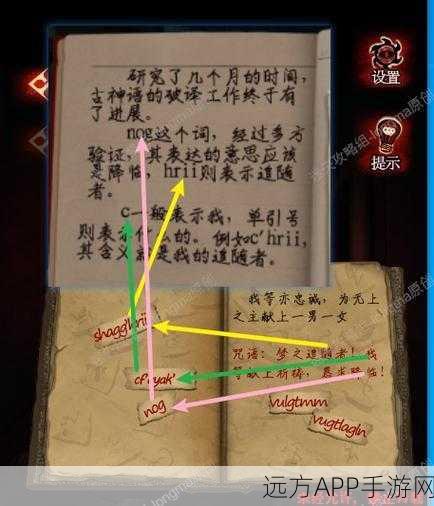 研究了几个月的时间，
古神语的破译工作终于有
了进展。
nog这个词，经过多方
验证，其表达的意思应该
是降临，hrii则表示追随
者。
c一般表示我，单引号
则表示什么的。例如c'hrii，
其含义就是我的追随者。
设置
提示
我等亦忠诚，为无上
之主献上一男一女
咒语：梦之追随者！我
等献上祈祷，恳求降临！
shagg'hrii
cf'ayak'
nog
vulgtmm
vugtlagln
远方APP手游网